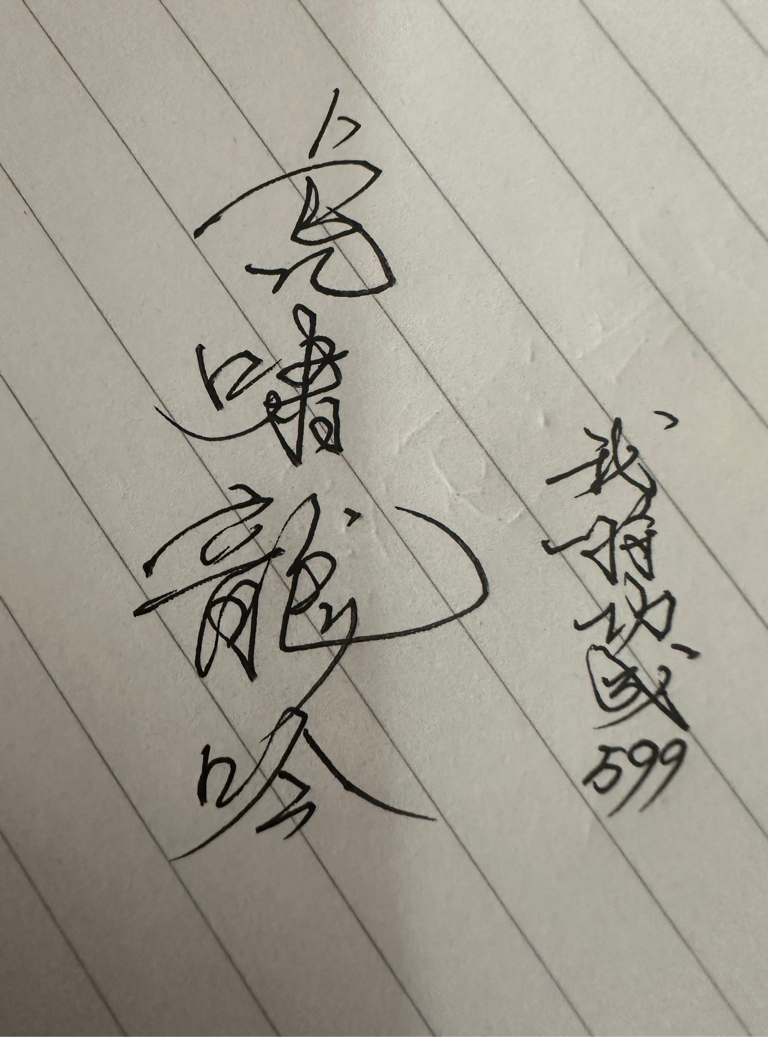 虎嘯龍吟
我将功成599